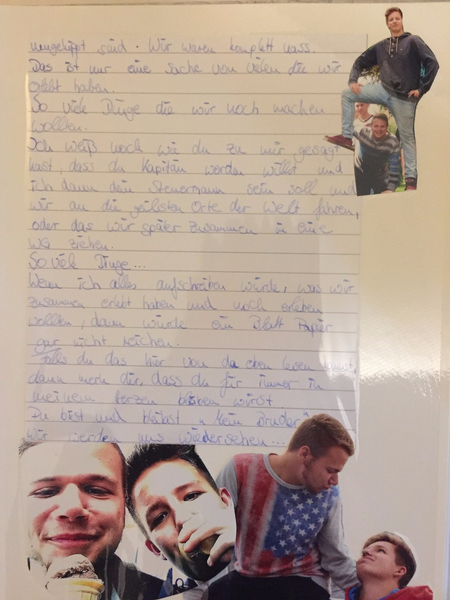 umgekippt sind. Wir waren komplett nass.
Das ist nur eine Sache von vielen die wir
erlebt haben.
So viele Dinge die wir noch machen
wollten.
Ich weiß noch wie du zu mir gesagt
hast, dass du Kapitän werden willst und
ich dann dein Steuermann sein soll und
wir an die geilsten Orte der Welt fahren,
oder das wir später zusammen in eine
WG ziehen.
So viele Dinge...
Wenn ich alles aufschreiben würde, was wir
zusammen erlebt haben und noch erleben
wollten, dann würde ein Blatt Papier
gar nicht reichen.
Falls du das hier von da oben lesen kannst,
dann merk dir, dass du für immer in
meinem Herzen bleiben wirst
Du bist und bleibst "Mein Bruder"
Wir werden uns wiedersehen...